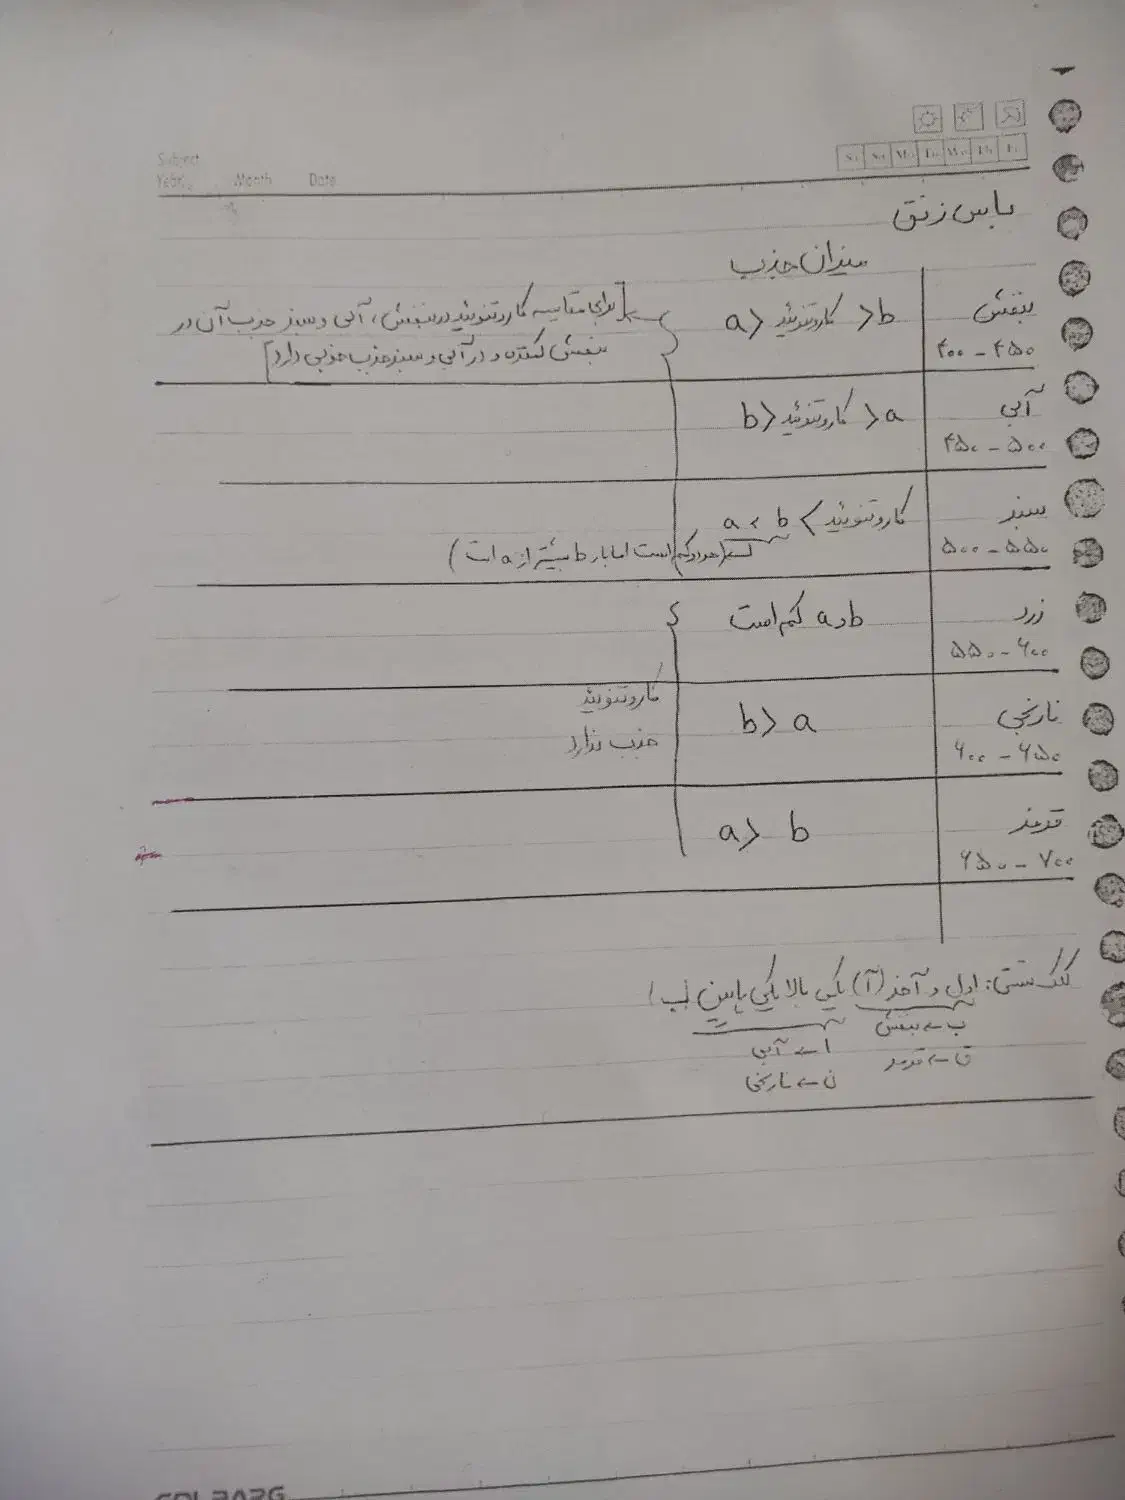 Subject
Year. Month Date
Sa Su Mo Tu We Th Fr
باس زنق
میزان جذب
بنفش
۴۰۰ - ۴۵۰
a > کاروتنوئید > b
[برای مقایسه کاروتنوئید در بنفش، آبی و سبز جذب آن در
بنفش کمتره و در آبی و سبز جذب خوبی دارد]
آبی
۴۵۰ - ۵۰۰
b > کاروتنوئید > a
سبز
۵۰۰ - ۵۵۰
کاروتنوئید > a , b
(هر دو کم است اما باز b بیشتر از a است)
زرد
۵۵۰ - ۶۰۰
a و b کم است
کاروتنوئید
جذب ندارد
نارنجی
۶۰۰ - ۶۵۰
b > a
قرمز
۶۵۰ - ۷۰۰
a > b
تستی: اول و آخر (آ) یکی بالا یکی پایین (ب)
ب ← بنفش
ق ← قرمز
ا ← آبی
ن ← نارنجی
GOLBARG